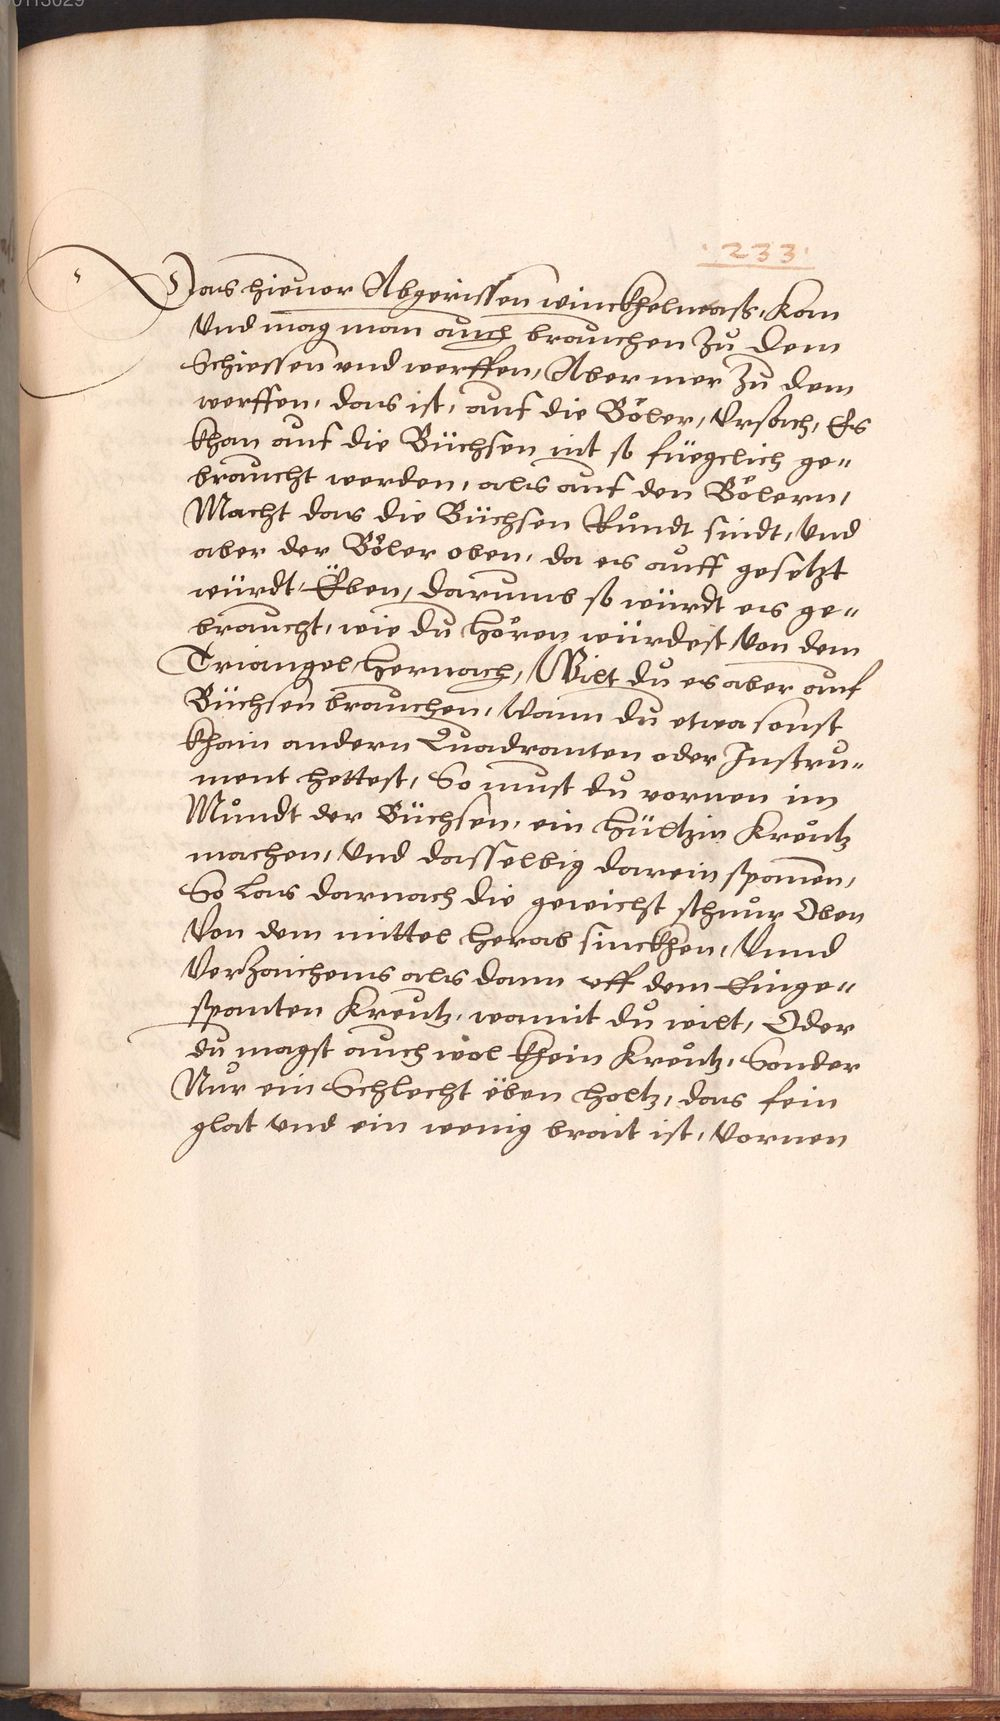 00113029
.233.
Das hieuor Abgerissen winckhelmass, Kan
Vnd mag man auch brauchen Zu dem
Schiessen vnd werffen, Aber mer Zu dem
werffen, das ist, auf die Böler, Vrsach, Es
khan auf die Büchsen nit so füeglich ge„
braucht werden, als auf den Bölern,
Macht das die Büchsen Rundt sindt, Vnd
aber der Böler oben, da es auff gesetzt
würdt, Eben, darumb so würdt es ge„
braucht, wie du hören würdest Von dem
Triangel hernach, Wilt du es aber auf
Büchsen brauchen, Wann du etwa sonst
khain andern Quadranten oder Instru„
ment hettest, So must du vornen im
Mundt der Büchsen, ein hültzin Kreutz
machen, Vnd dasselbig darein spannen,
So Las darnach die gewicht schnur Oben
Von dem mittel herab sinckhen, Vnnd
Verzaichens als dann vff dem Einge„
spanten Kreutz, wamit du wilt, Oder
du magst auch wol khein Kreutz, Sonder
Nur ein Schlecht eben holtz, das fein
glat vnd ein wenig brait ist, Vornen